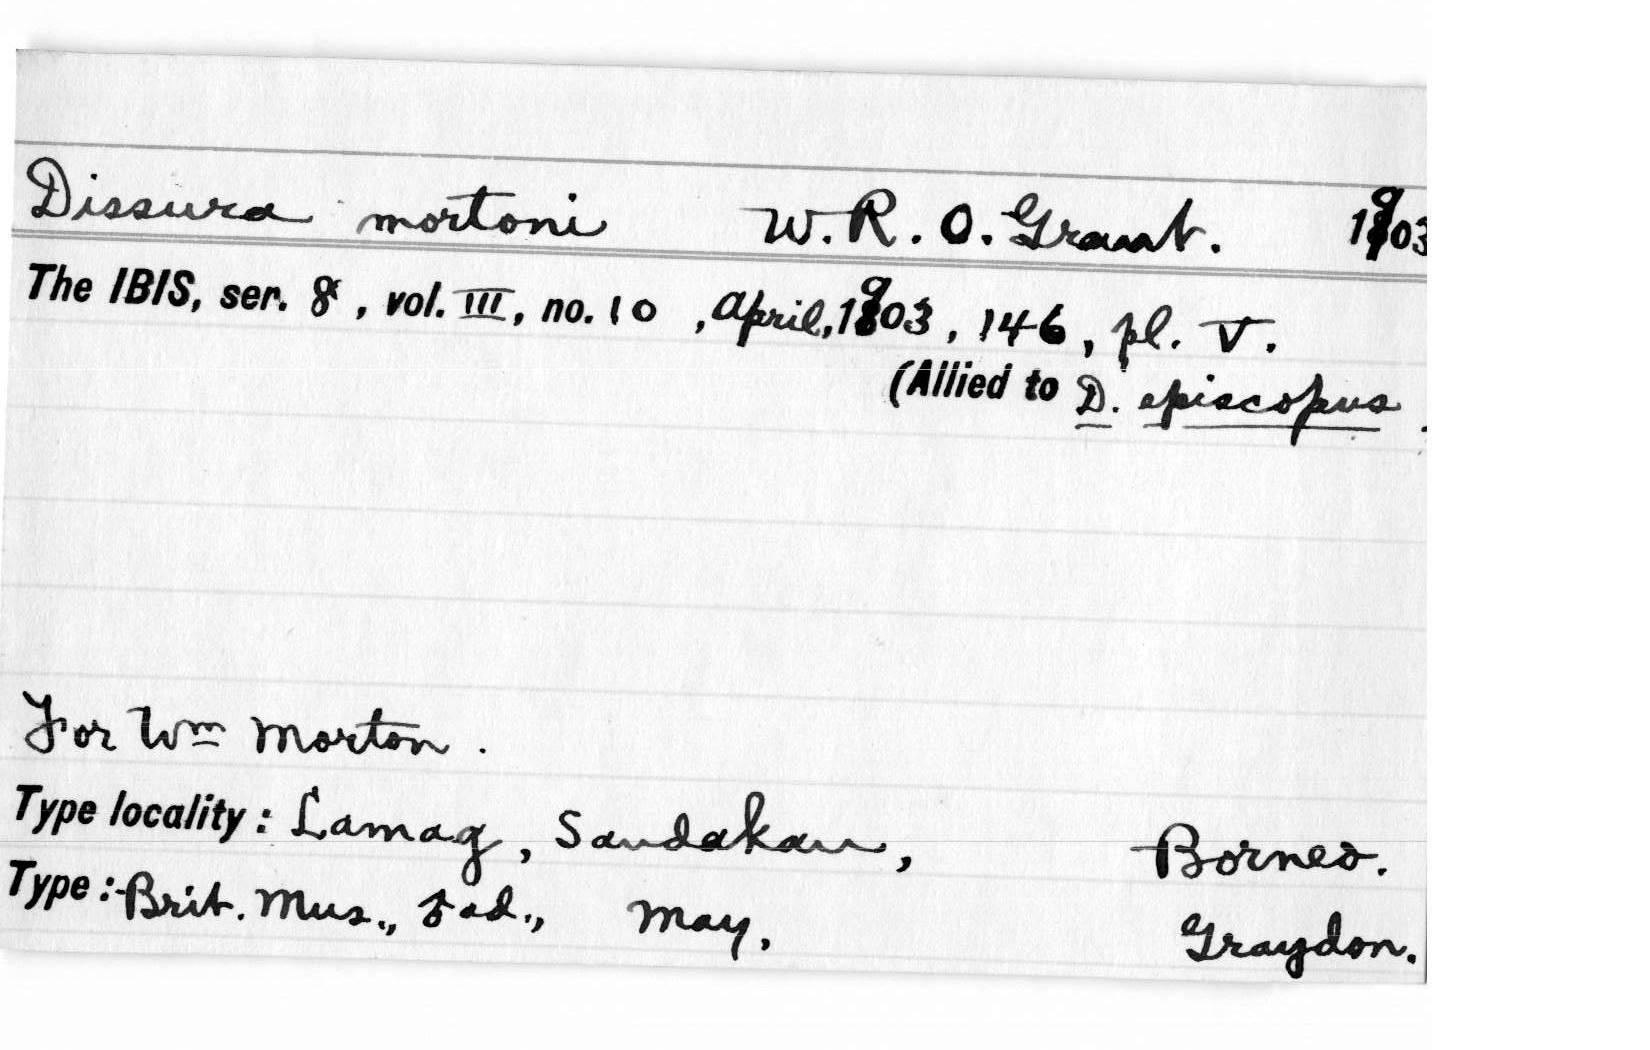 Dissura mortoni W. R. O. Grant. 1903
The IBIS, ser. 8, vol. III, no. 10, April, 1903, 146, pl. V.
(Allied to D. episcopus.
For Wm Morton.
Type locality: Lamag, Sandakan, Borneo.
Type:-Brit. Mus., ♂ ad., May, Graydon.